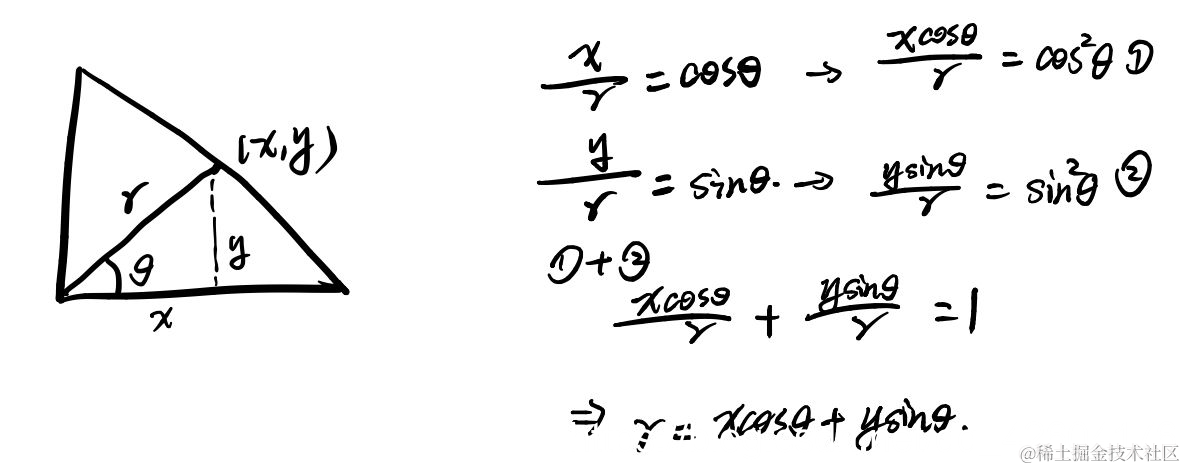 (x,y)
r
θ
y
x
x/r = cosθ → xcosθ/r = cos²θ ①
y/r = sinθ. → ysinθ/r = sin²θ ②
①+②
xcosθ/r + ysinθ/r = 1
⇒ r = xcosθ + ysinθ.
@稀土掘金技术社区